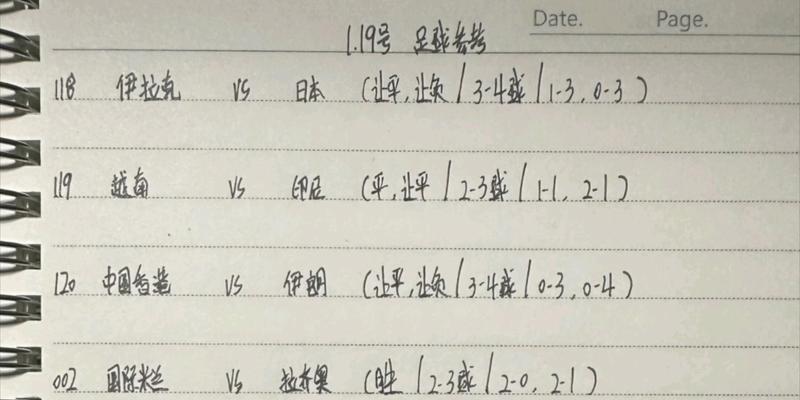 Date. Page.
1.19号 足球参考
118 伊拉克 VS 日本 (让平,让负/3-4球/1-3,0-3)
119 越南 VS 印尼 (平,让平/2-3球/1-1,2-1)
120 中国香港 VS 伊朗 (让平,让负/3-4球/0-3,0-4)
002 国际米兰 VS 拉齐奥 (胜/2-3球/2-0,2-1)